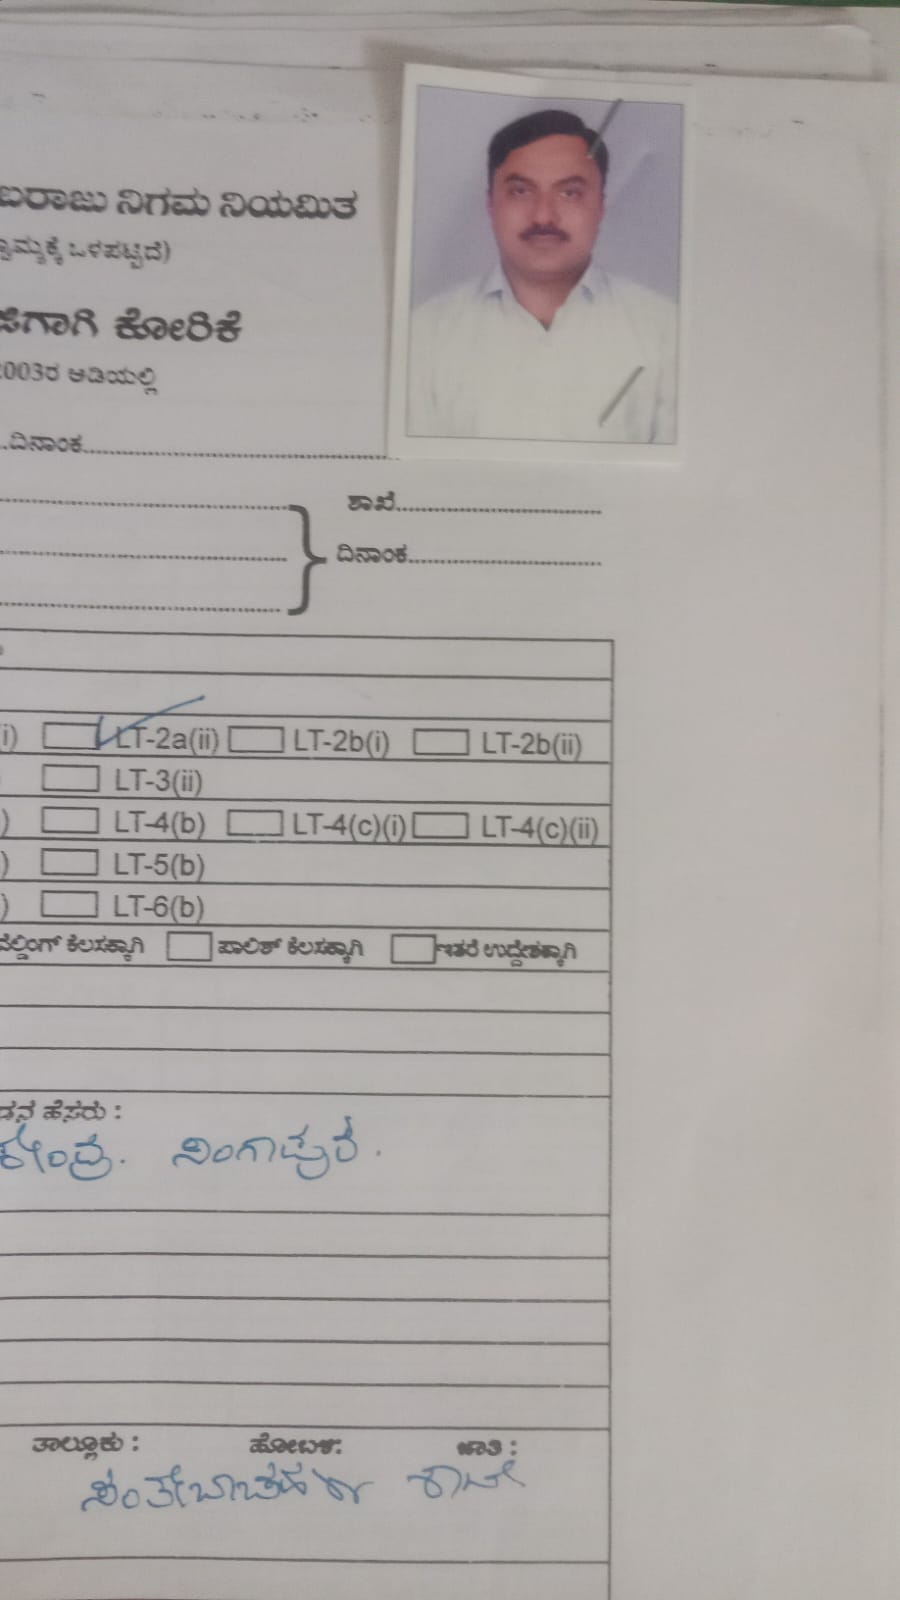 ಬರಾಜು ನಿಗಮ ನಿಯಮಿತ
ಒಳಪಟ್ಟಿದೆ)
ಕೋರಿಕೆ
2003ರ ಅಡಿಯಲ್ಲಿ
ದಿನಾಂಕ
ಶಾಖೆ
ದಿನಾಂಕ
i) LT-2a(ii) LT-2b(i) LT-2b(ii)
LT-3(ii)
) LT-4(b) LT-4(c)(i) LT-4(c)(ii)
) LT-5(b)
) LT-6(b)
ವೆಲ್ಡಿಂಗ್ ಕೆಲಸಕ್ಕಾಗಿ ಪಾಲಿಶ್ ಕೆಲಸಕ್ಕಾಗಿ ಇತರೆ ಉದ್ದೇಶಕ್ಕಾಗಿ
ಹೆಸರು :
ತಾಲ್ಲೂಕು : ಹೋಬಳಿ: ಜಾತಿ :